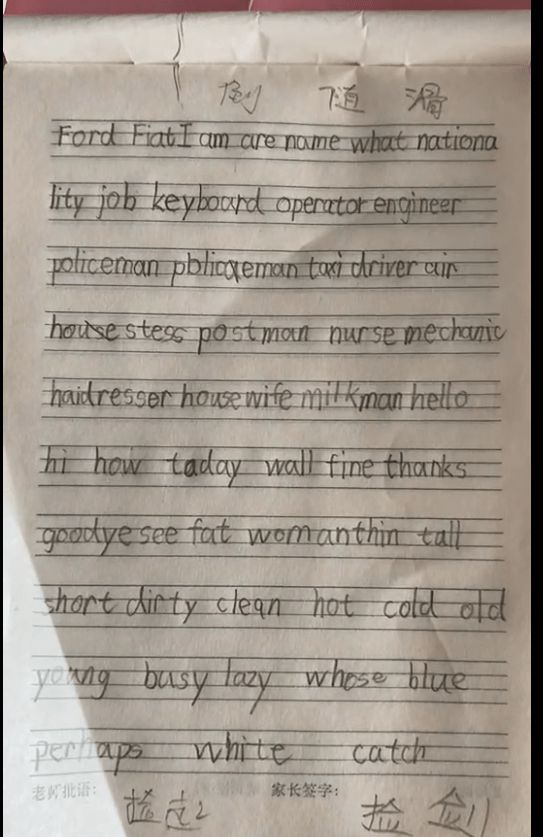 随 滑
Ford Fiat I am are name what nationa
lity job keyboard operator engineer
policeman pblicqeman taxi driver air
house stess postman nurse mechanic
haidresser housewife milkman hello
hi how taday wall fine thanks
goodye see fat woman thin tall
short dirty clean hot cold old
young busy lazy whose blue
perhaps white catch
老师批语: 家长签字:
捡